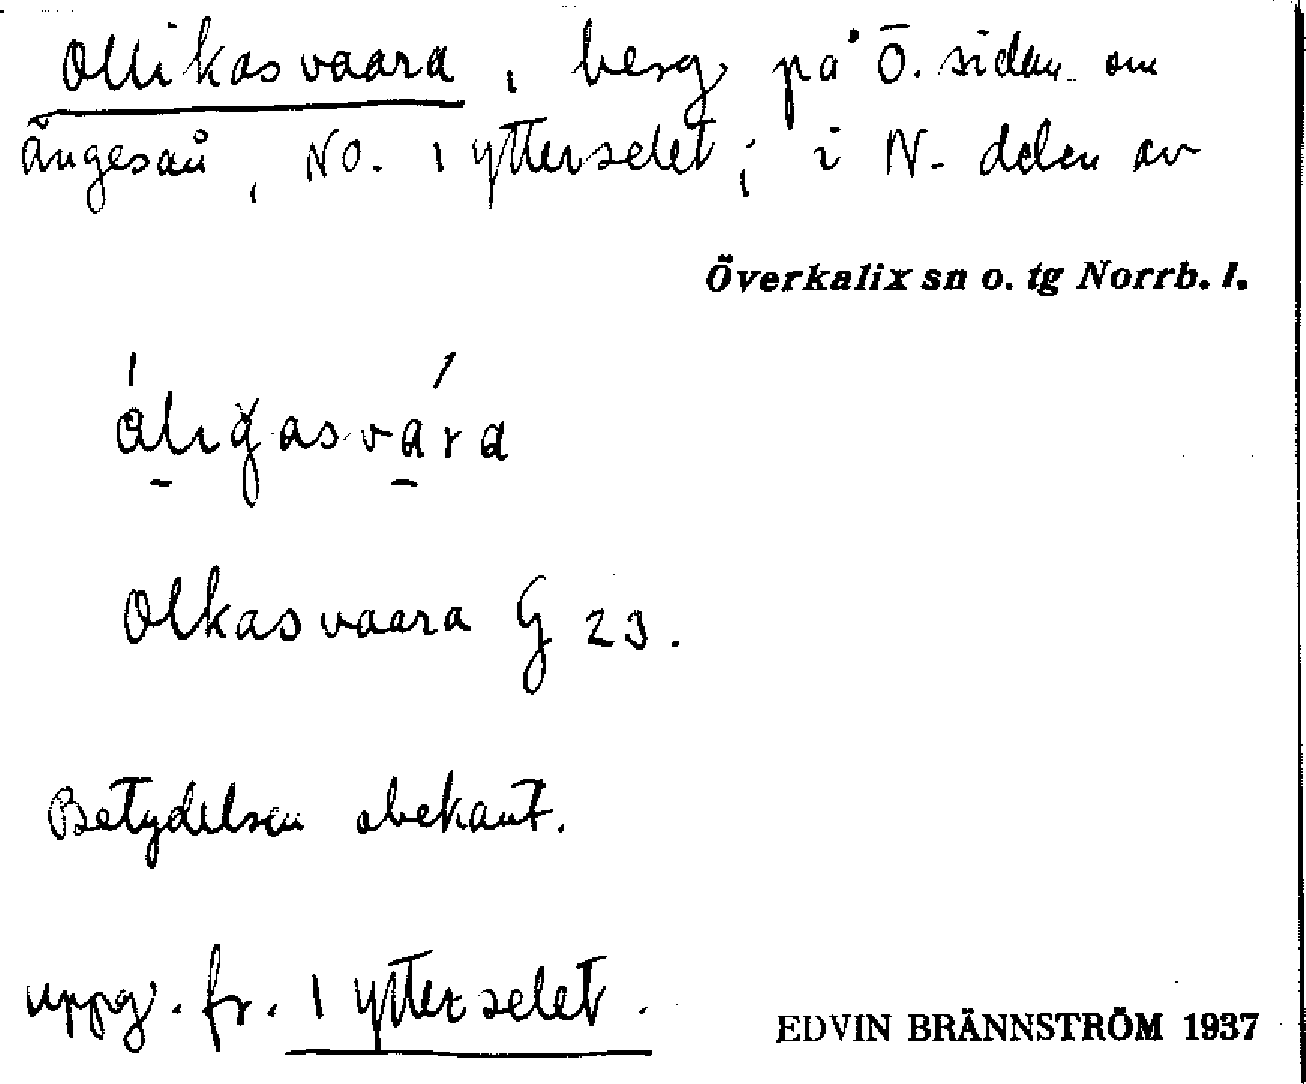 Ollikasvaara, berg på Ö. sidan om
Ängesån, NO. 1 Ytterselet; i N. delen av
Överkalix sn o. tg Norrb. l.
Olkasvaara G 23.
Betydelsen obekant.
uppg. fr. 1 Ytterselet.
EDVIN BRÄNNSTRÖM 1937